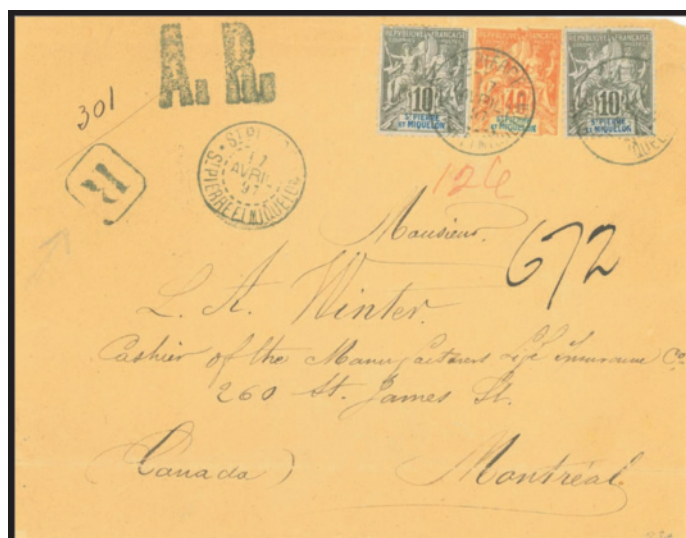 A. R.
301
R
RÉPUBLIQUE FRANÇAISE
10
ST PIERRE
ET MIQUELON
RÉPUBLIQUE FRANÇAISE
40
ST PIERRE
ET MIQUELON
RÉPUBLIQUE FRANÇAISE
10
ST PIERRE
ET MIQUELON
17
AVRIL
97
ST PIERRE ET MIQUELON
126
672
Monsieur
L. A. Winter.
Cashier of the Manufacturers Life Insurance Co
260 St. James St.
(Canada) Montréal